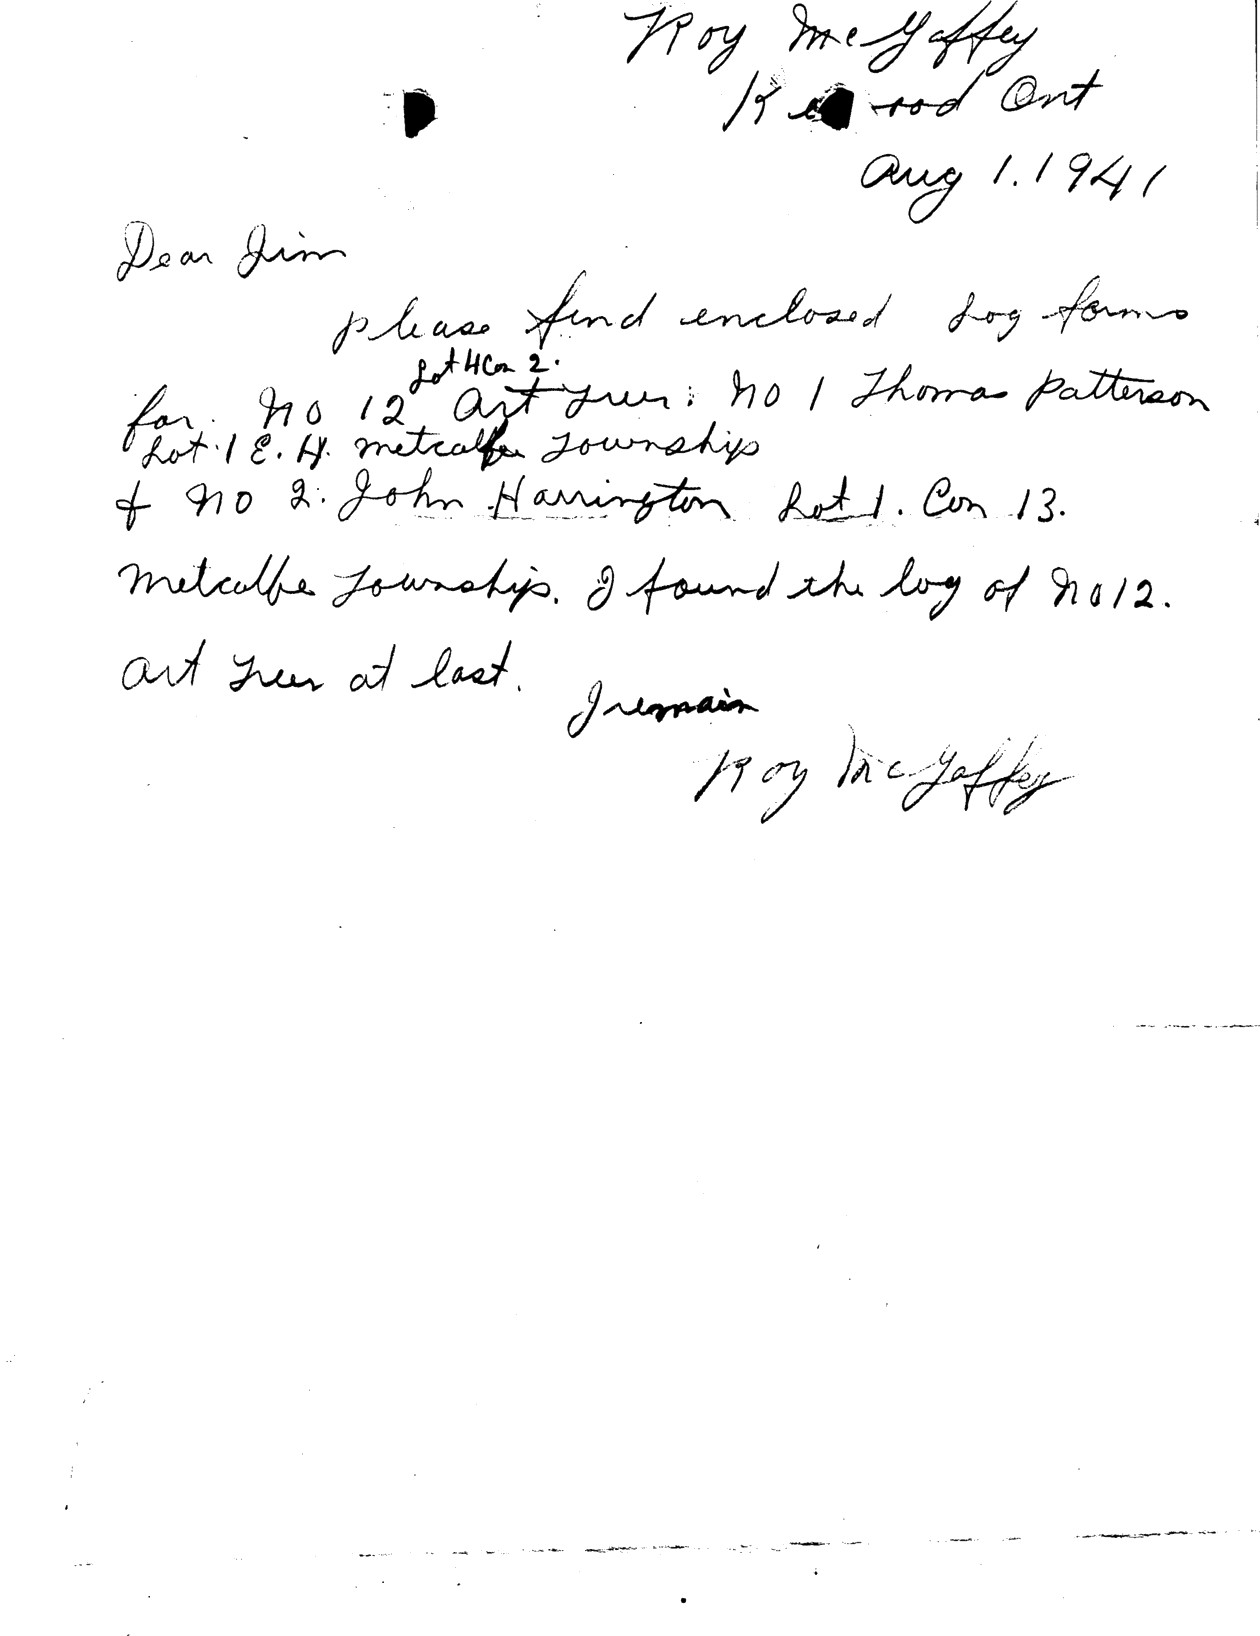 Roy McGaffey
Ke rood Ont
Aug 1. 1941
Dear Jim
please find enclosed Log forms
Lot 4 Con 2.
for. No 12 Art : No 1 Thomas Patterson
Lot. 1 E. H. Metcalfe Township
& No 2. John Harrington Lot 1. Con 13.
Metcalfe Township. I found the log of No 12.
Art at last.
I remain
Roy McGaffey